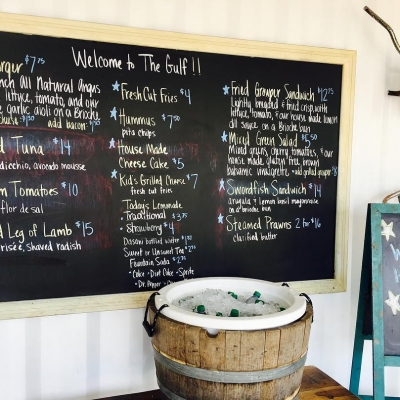 Welcome to The Gulf !!
$7.75
All Natural Angus
lettuce, tomato, and our
garlic aioli on a Brioche
add bacon
Tuna $14
avocado mousse
Tomatoes $10
flor de sal
Leg of Lamb $15
shaved radish
Fresh Cut Fries $4
Hummus $7.50
pita chips
House Made
Cheese Cake $5
Kid's Grilled Cheese $7
fresh cut fries
Today's Lemonade
- Traditional $3.75
- Strawberry $4
Dasani bottled water
Sweet or Unsweet Tea
Fountain Soda $2
- Coke - Diet Coke - Sprite
- Dr. Pepper
Fried Grouper Sandwich $12.75
Lightly breaded & fried crisp, with
lettuce, tomato, & our house made lemon
dill sauce on a Brioche bun
Mixed Green Salad $5.50
Mixed greens, cherry tomatoes, & our
house made gluten free, brown
balsamic vinaigrette - add grilled grouper
Swordfish Sandwich $14
arugula & lemon basil mayonnaise
on a brioche bun
Steamed Prawns 2 for $16
clarified butter